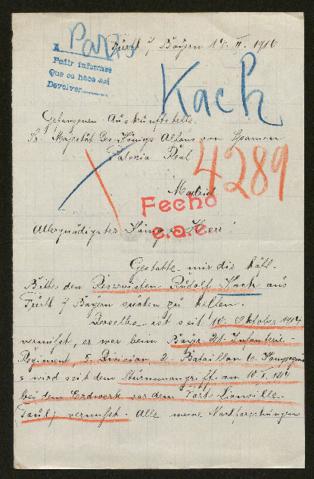 Paris
Fürth / Bayern 14. II. 1916
Pedir informes
Que se hace así
Devolver
Kach
Gefangenen Auskunftstelle
Sr Majestät des Königs Alfons von Spanien
Palacio Real
4289
Madrid
Fecho
Allergnädigster König u. Herr!
Gestatte mir die höfl.
Bitte den Reservisten Rudolf Kach aus
Fürth / Bayern suchen zu
Derselbe ist seit 10. Oktober 1914
vermisst, er war beim Bayr. Infanterie
Regiment, 5 Division 2. Bataillon 6. Kompagnie
u wird seit dem Sturmangriff am 10. 1914
bei dem Erdwerk vor dem Fort Lionville
vermisst. Alle meine Nachforschungen